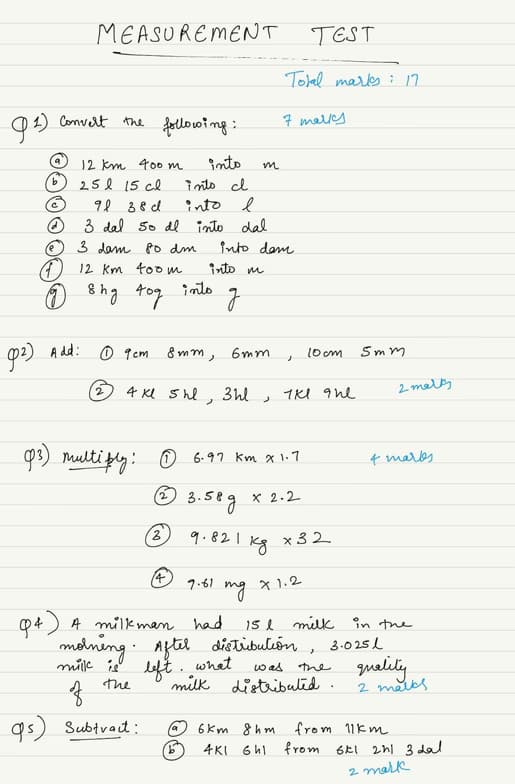 MEASUREMENT TEST
Total marks : 17
Q1) Convert the following : 7 marks
(a) 12 km 400 m into m
(b) 25 l 15 cl into cl
(c) 9l 38cl into l
(d) 3 dal 50 dl into dal
(e) 3 dam 80 dm into dam
(f) 12 km 400 m into m
(g) 8 hg 40g into g
Q2) Add : (1) 9cm 8mm, 6mm , 10cm 5mm
(2) 4 kl 5 hl , 3hl , 7Kl 9hl 2 marks
Q3) Multiply : (1) 6.97 km x 1.7 4 marks
(2) 3.58g x 2.2
(3) 9.821 kg x 32
(4) 7.61 mg x 1.2
Q4) A milkman had 15 l milk in the
morning. After distribution , 3.025 l
milk is left. what was the quality
of the milk distributed . 2 marks
Q5) Subtract : (a) 6km 8hm from 11km
(b) 4Kl 6hl from 6kl 2hl 3 dal
2 mark